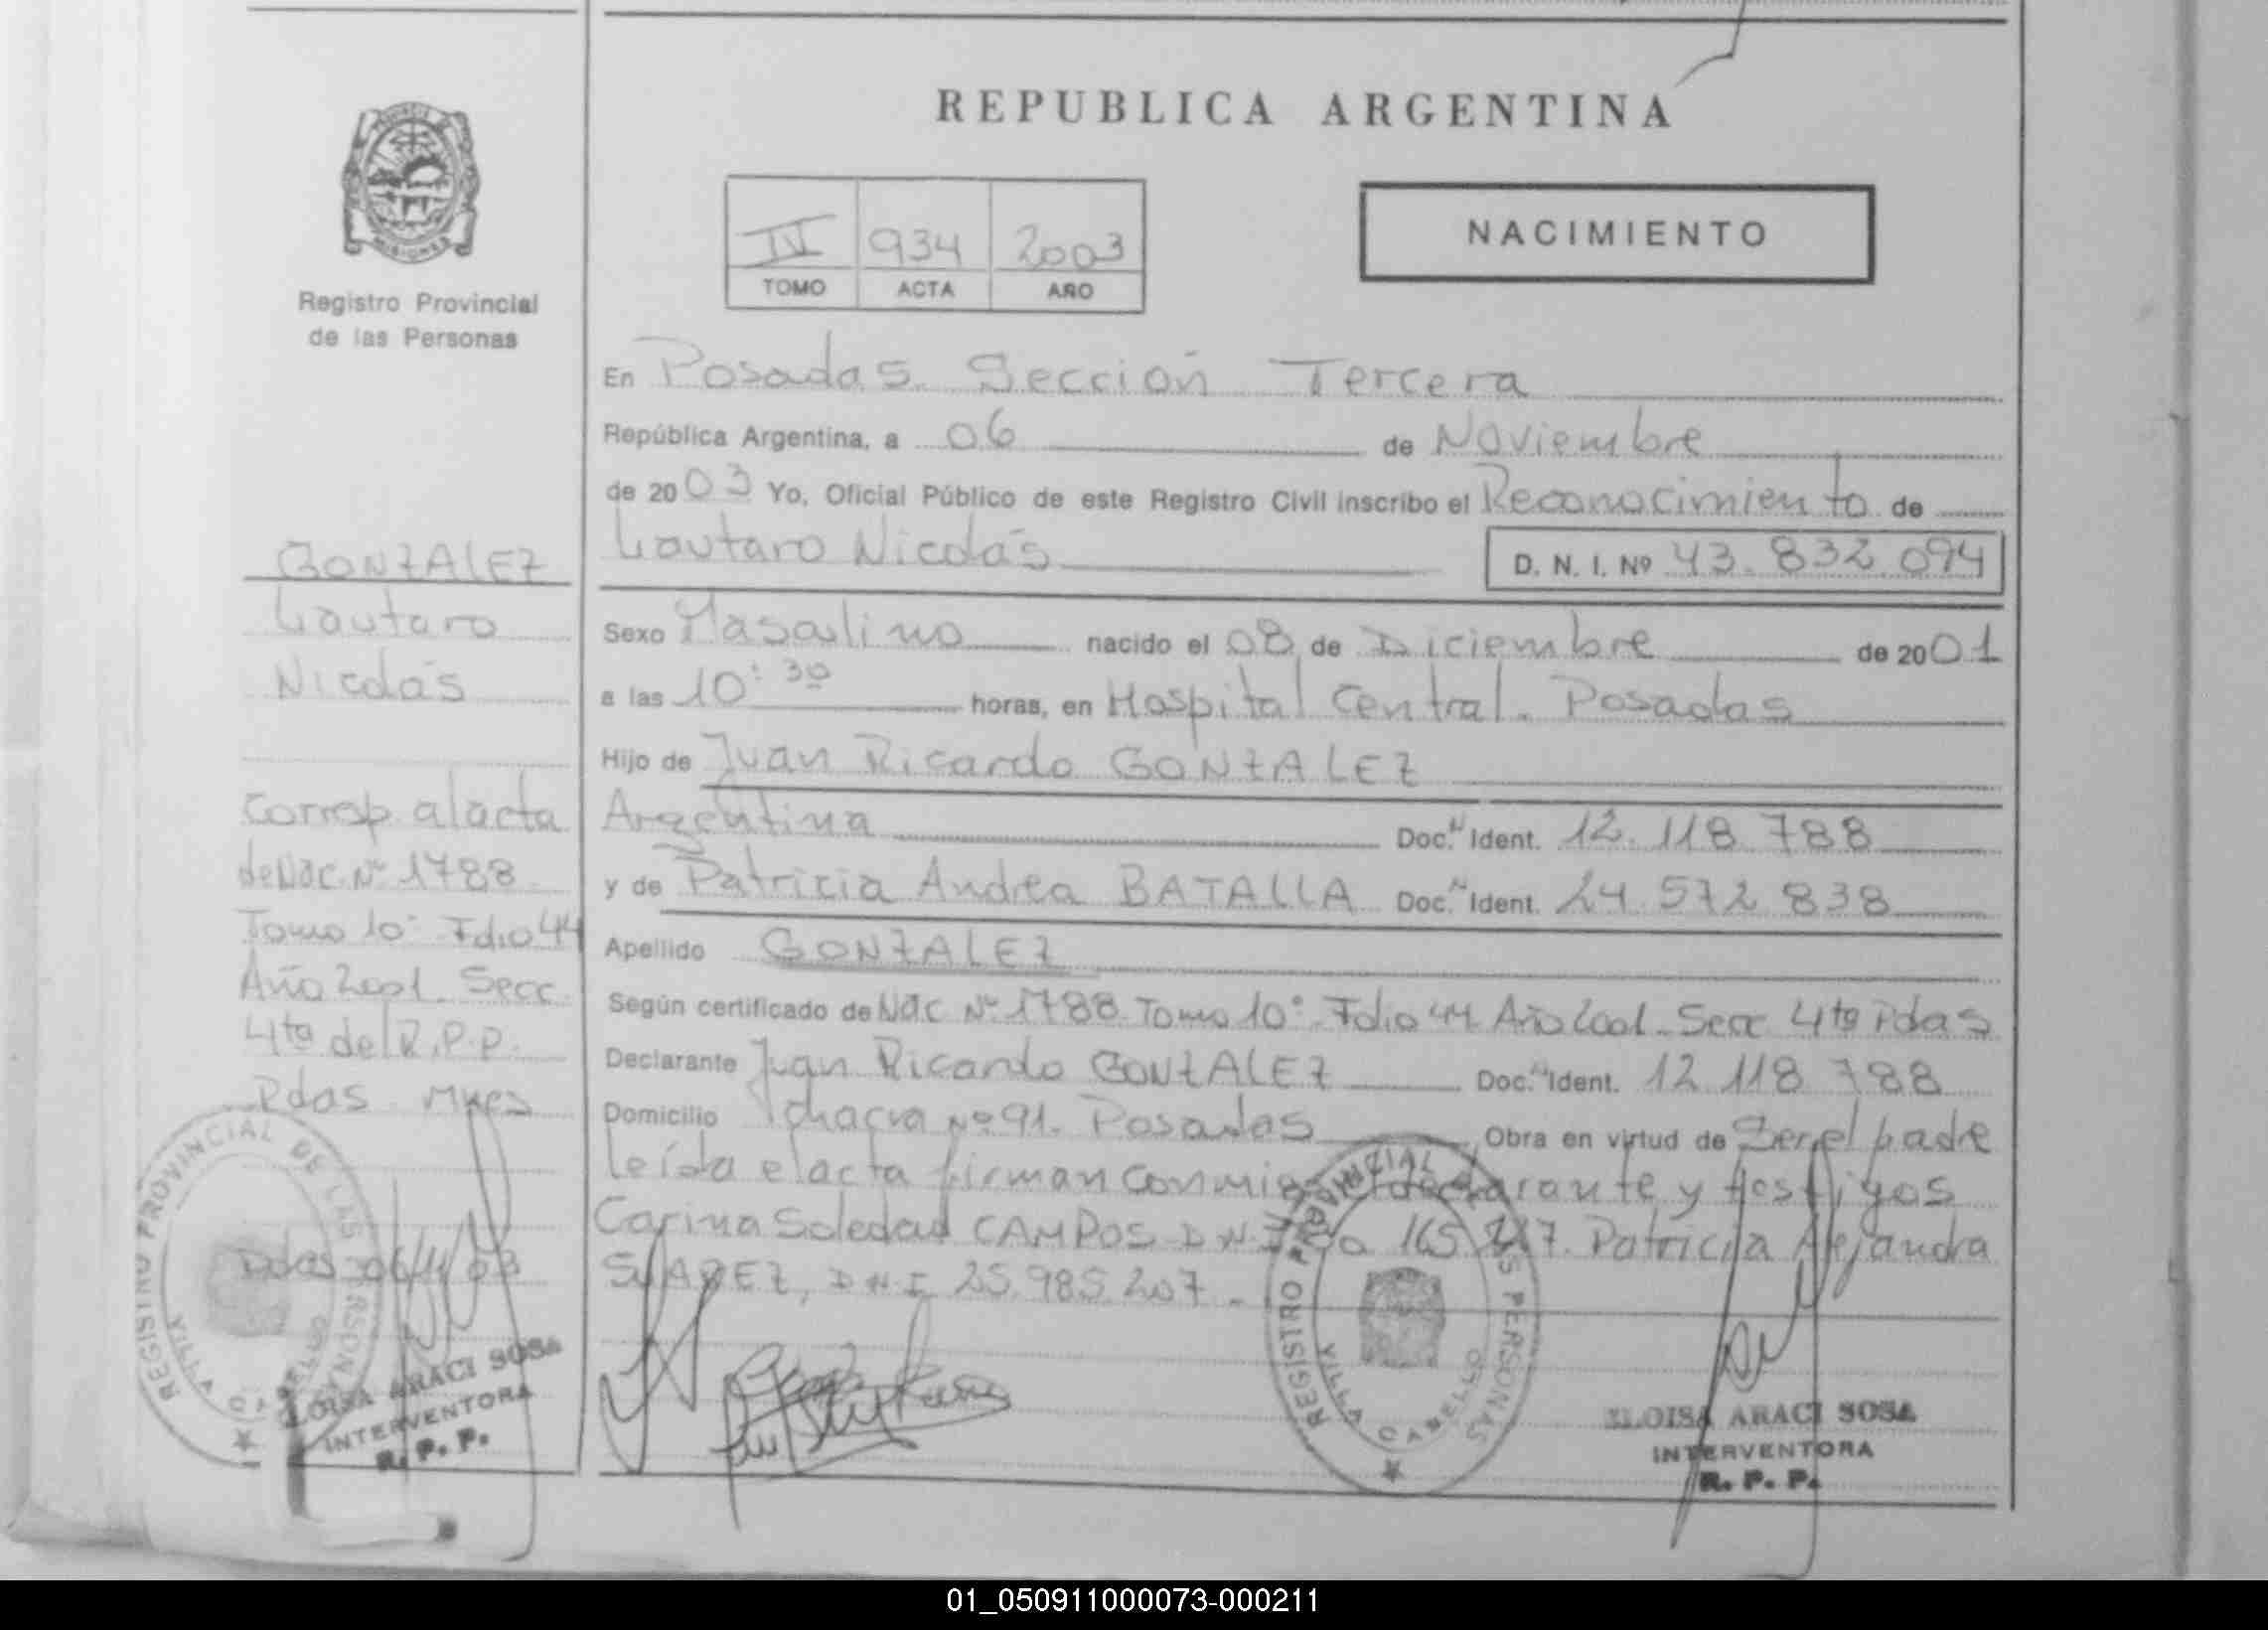 REPUBLICA ARGENTINA
MISIONES
Registro Provincial
de las Personas
IV 934 2003
TOMO ACTA AÑO
NACIMIENTO
En Posadas. Sección Tercera
República Argentina, a 06 de Noviembre
de 2003 Yo, Oficial Público de este Registro Civil inscribo el Reconocimiento de
Lautaro Nicolás D. N. I. Nº 43.832.094
Sexo Masculino nacido el 08 de Diciembre de 2001
a las 10:30 horas, en Hospital Central. Posadas
Hijo de Juan Ricardo GONZALEZ
Argentina Doc. N Ident. 12.118.788
y de Patricia Andrea BATALLA Doc. N Ident. 24.572.838
Apellido GONZALEZ
Según certificado de Nac Nº 1788 Tomo 10º Folio 44 Año 2001. Secc 4ta Pdas
Declarante Juan Ricardo GONZALEZ Doc. N Ident. 12.118.788
Domicilio chacra Nº 91. Posadas Obra en virtud de Ser el padre
leída el acta firman conmigo el declarante y testigos
Carina Soledad CAMPOS D.N.I. 165 Patricia Alejandra
SUAREZ, D.N.I 25.985.207.-
GONZALEZ
Lautaro
Nicolás
Corresp. al acta
de Nac. Nº 1788
Tomo 10º Folio 44
Año 2001. Secc
4ta del R.P.P.
Pdas Mnes
Pdas 06/11/03
REGISTRO PROVINCIAL DE LAS PERSONAS
VILLA CABELLO
ELOISA ARACI SOSA
INTERVENTORA
R. P. P.
REGISTRO PROVINCIAL DE LAS PERSONAS
VILLA CABELLO
ELOISA ARACI SOSA
INTERVENTORA
R. P. P.
01_050911000073-000211